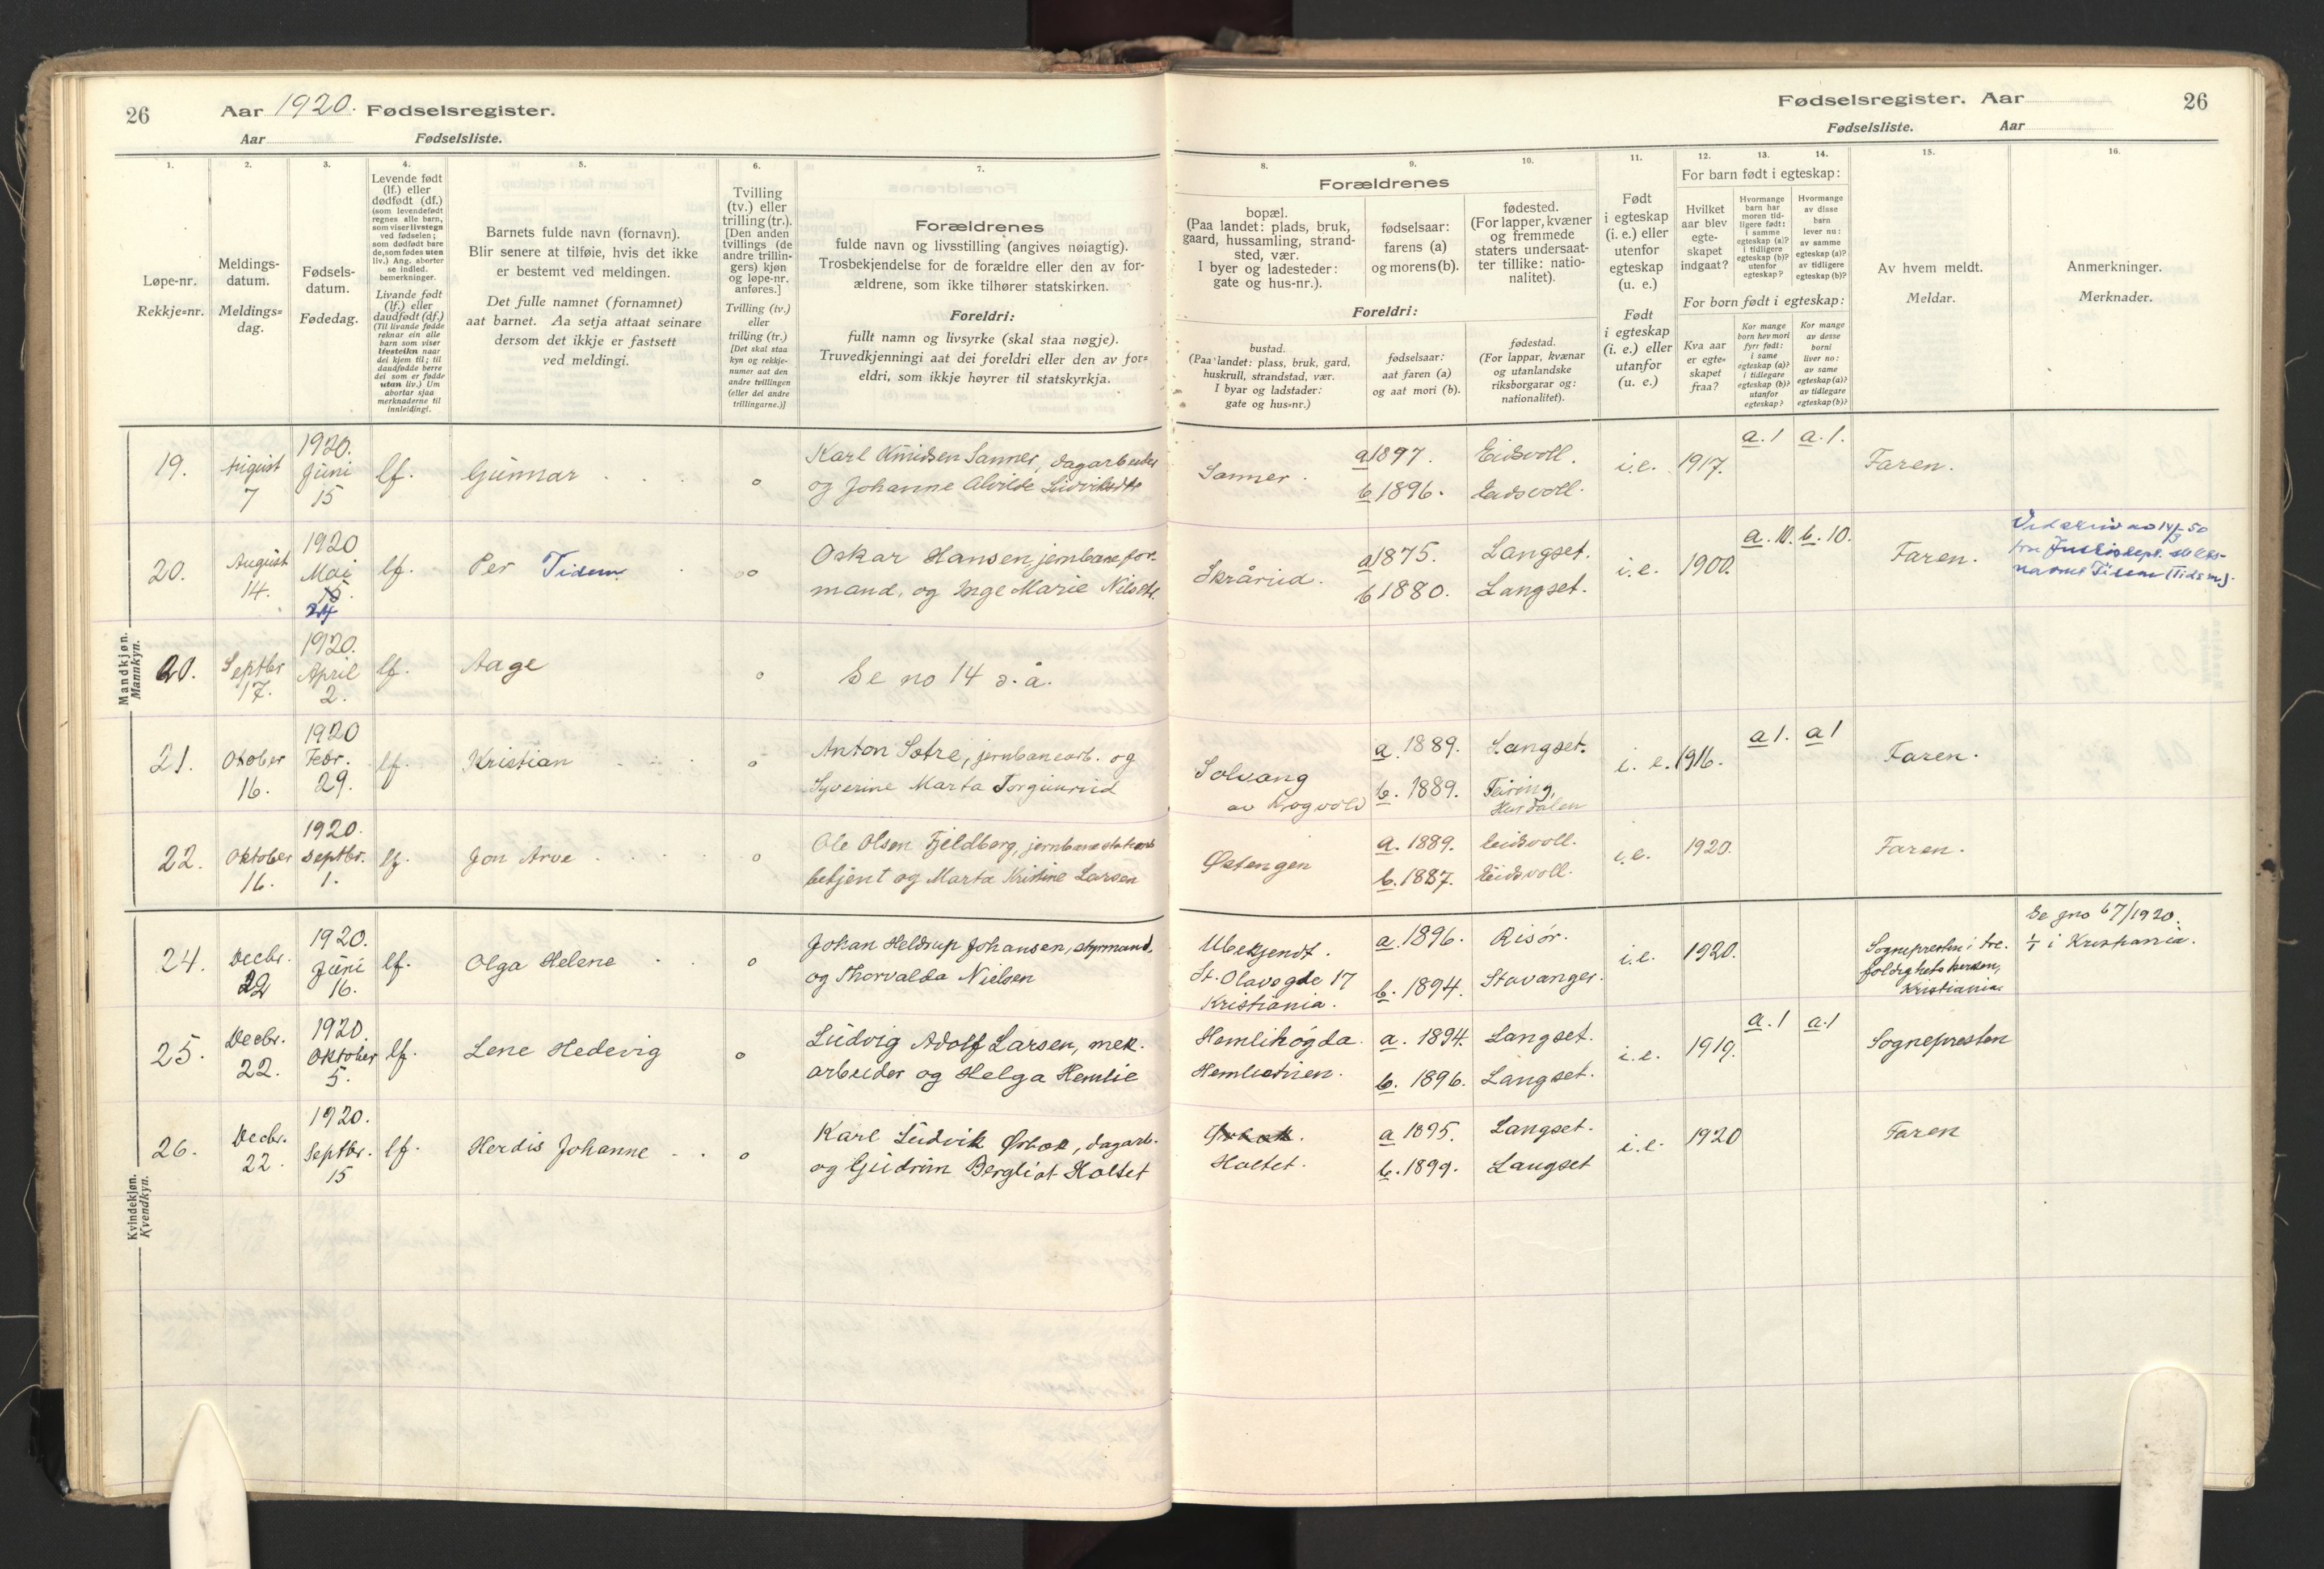 26
Aar 1920. Fødselsregister.
Aar Fødselsliste.
Fødselsregister. Aar
26
Fødselsliste. Aar
1.
Løpe-nr.
Rekkje=nr.
2.
Meldings-
datum.
Meldings=
dag.
3.
Fødsels-
datum.
Fødedag.
4.
Levende født
(lf.) eller
dødfødt (df.)
(som levendefødt
regnes alle barn,
som viser livstegn
ved fødselen;
som dødfødt bare
de, som fødes uten
liv.) Ang. aborter
se indled.
bemerkninger.
Livande født
(lf.) eller
daudfødt (df.)
(Til livande fødde
reknar ein alle
barn som viser
livsteikn naar
dei kjem til; til
daudfødde berre
dei som er fødde
utan liv.) Um
abortar sjaa
merknaderne til
innleidingi.
5.
Barnets fulde navn (fornavn).
Blir senere at tilføie, hvis det ikke
er bestemt ved meldingen.
Det fulle namnet (fornamnet)
aat barnet. Aa setja attaat seinare
dersom det ikkje er fastsett
ved meldingi.
6.
Tvilling
(tv.) eller
trilling (tr.).
[Den anden
tvillings (de
andre trillin-
gers) kjøn
og løpe-nr.
anføres.]
Tvilling (tv.)
eller
trilling (tr.)
[Det skal staa
kyn og rekkje-
numer aat den
andre tvillingen
(eller dei andre
trillingarne.)]
7.
Forældrenes
fulde navn og livsstilling (angives nøiagtig).
Trosbekjendelse for de forældre eller den av for-
ældrene, som ikke tilhører statskirken.
Foreldri:
fullt namn og livsyrke (skal staa nøgje).
Truvedkjenningi aat dei foreldri eller den av for=
eldri, som ikkje høyrer til statskyrkja.
Forældrenes
8.
bopæl.
(Paa landet: plads, bruk,
gaard, hussamling, strand-
sted, vær.
I byer og ladesteder:
gate og hus-nr.).
9.
fødselsaar:
farens (a)
og morens (b).
10.
fødested.
(For lapper, kvæner
og fremmede
staters undersaat-
ter tillike: natio-
nalitet).
Foreldri:
bustad.
(Paa landet: plass, bruk, gard,
huskrull, strandstad, vær.
I byar og ladstader:
gate og hus=nr.)
fødselsaar:
aat faren (a)
og aat mori (b).
fødestad.
(For lappar, kvænar
og utanlandske
riksborgarar og:
nationalitet).
11.
Født
i egteskap
(i. e.) eller
utenfor
egteskap
(u. e.)
Født
i egteskap
(i. e.) eller
utanfor
(u. e.)
12. 13. 14.
For barn født i egteskap:
Hvilket
aar blev
egte-
skapet
indgaat?
Hvormange
barn har
moren tid-
ligere født:
i samme
egteskap (a)?
i tidligere
egteskap (b)?
utenfor
egteskap?
Hvormange
av disse
barn
lever nu:
av samme
egteskap (a)?
av tidligere
egteskap (b)?
For born født i egteskap:
Kva aar
er egte=
skapet
fraa?
Kor mange
born hev mori
fyrr født:
i same
egteskap (a)?
i tidlegare
egteskap (b)?
utanfor
egteskap?
Kor mange
av desse
borni
liver no:
av same
egteskap (a)?
av tidlegare
egteskap (b)?
15.
Av hvem meldt.
Meldar.
16.
Anmerkninger.
Merknader.
Mandkjøn.
Mannkyn.
19. August 7 1920. Juni 15 lf. Gunnar o
Karl Knudsen Sanner, dagarbeider
og Johanne Alvilde Ludviksdtr
Sanner. a 1897. Eidsvoll. i.e. 1917. a. 1 a. 1. Faren.
b 1896. Eidsvoll.
20. August 14. 1920 Mai 15. 24 lf. Per Tidem o
Oskar Hansen jernbanefor-
mand, og Inge Marie Nilsdtr.
Skårud. a 1875. Langset. i.e. 1900. a. 10. b. 10. Faren.
b 1880. Langset.
20. Septbr 17. 1920. April 2. lf. Aage o
Se no 14 d. å.
21. Otober 16. 1920 Febr. 29. lf. Kristian o
Anton Sætre, jernbanearb. og
Syverine Marta Torgunrud
Solvang a. 1889. Langset. i. e. 1916. a 1. a 1 Faren.
av Krogvold b. 1889. Feiring, Hurdalen
22. Oktober 16. 1920. Septbr. 1. lf. Jon Arve o
Ole Olsen Fjeldberg, jernbane
betjent og Marta Kristine Larsen
Østengen a. 1889. Eidsvoll. i.e. 1920. Faren.
b. 1887. Eidsvoll.
Kvindekjøn.
Kvendkyn.
24. Decbr. 22 1920. Juni 16. lf. Olga Helene o
Johan Heldrup Johansen, styrmand,
og Thorvalda Nielsen
Ubekjendt. a. 1896. Risør. i.e. 1920.
St. Olavsgde 17 b. 1894. Stavanger.
Kristiania.
Sognepresten i Tre.
foldighets kirken,
Kristiania
Se jno 67/1920.
i Kristiania.
25. Decbr. 22. 1920. Oktober 5. lf. Lene Hedevig o
Ludvig Adolf Larsen, mek.
arbeider og Helga Hemlie
Hemlihøgda. a. 1894. Langset. i.e. 1919. a. 1 a. 1 Sognepresten
b. 1896. Langset.
26. Decbr. 22. 1920. Septbr. 15 lf. Herdis Johanne o
Karl Ludvik Ørbæk, dagarb.
og Gudrun Bergliot Holtet
Holtet. a 1895. Langset. i.e. 1920 Faren
b. 1899. Langset